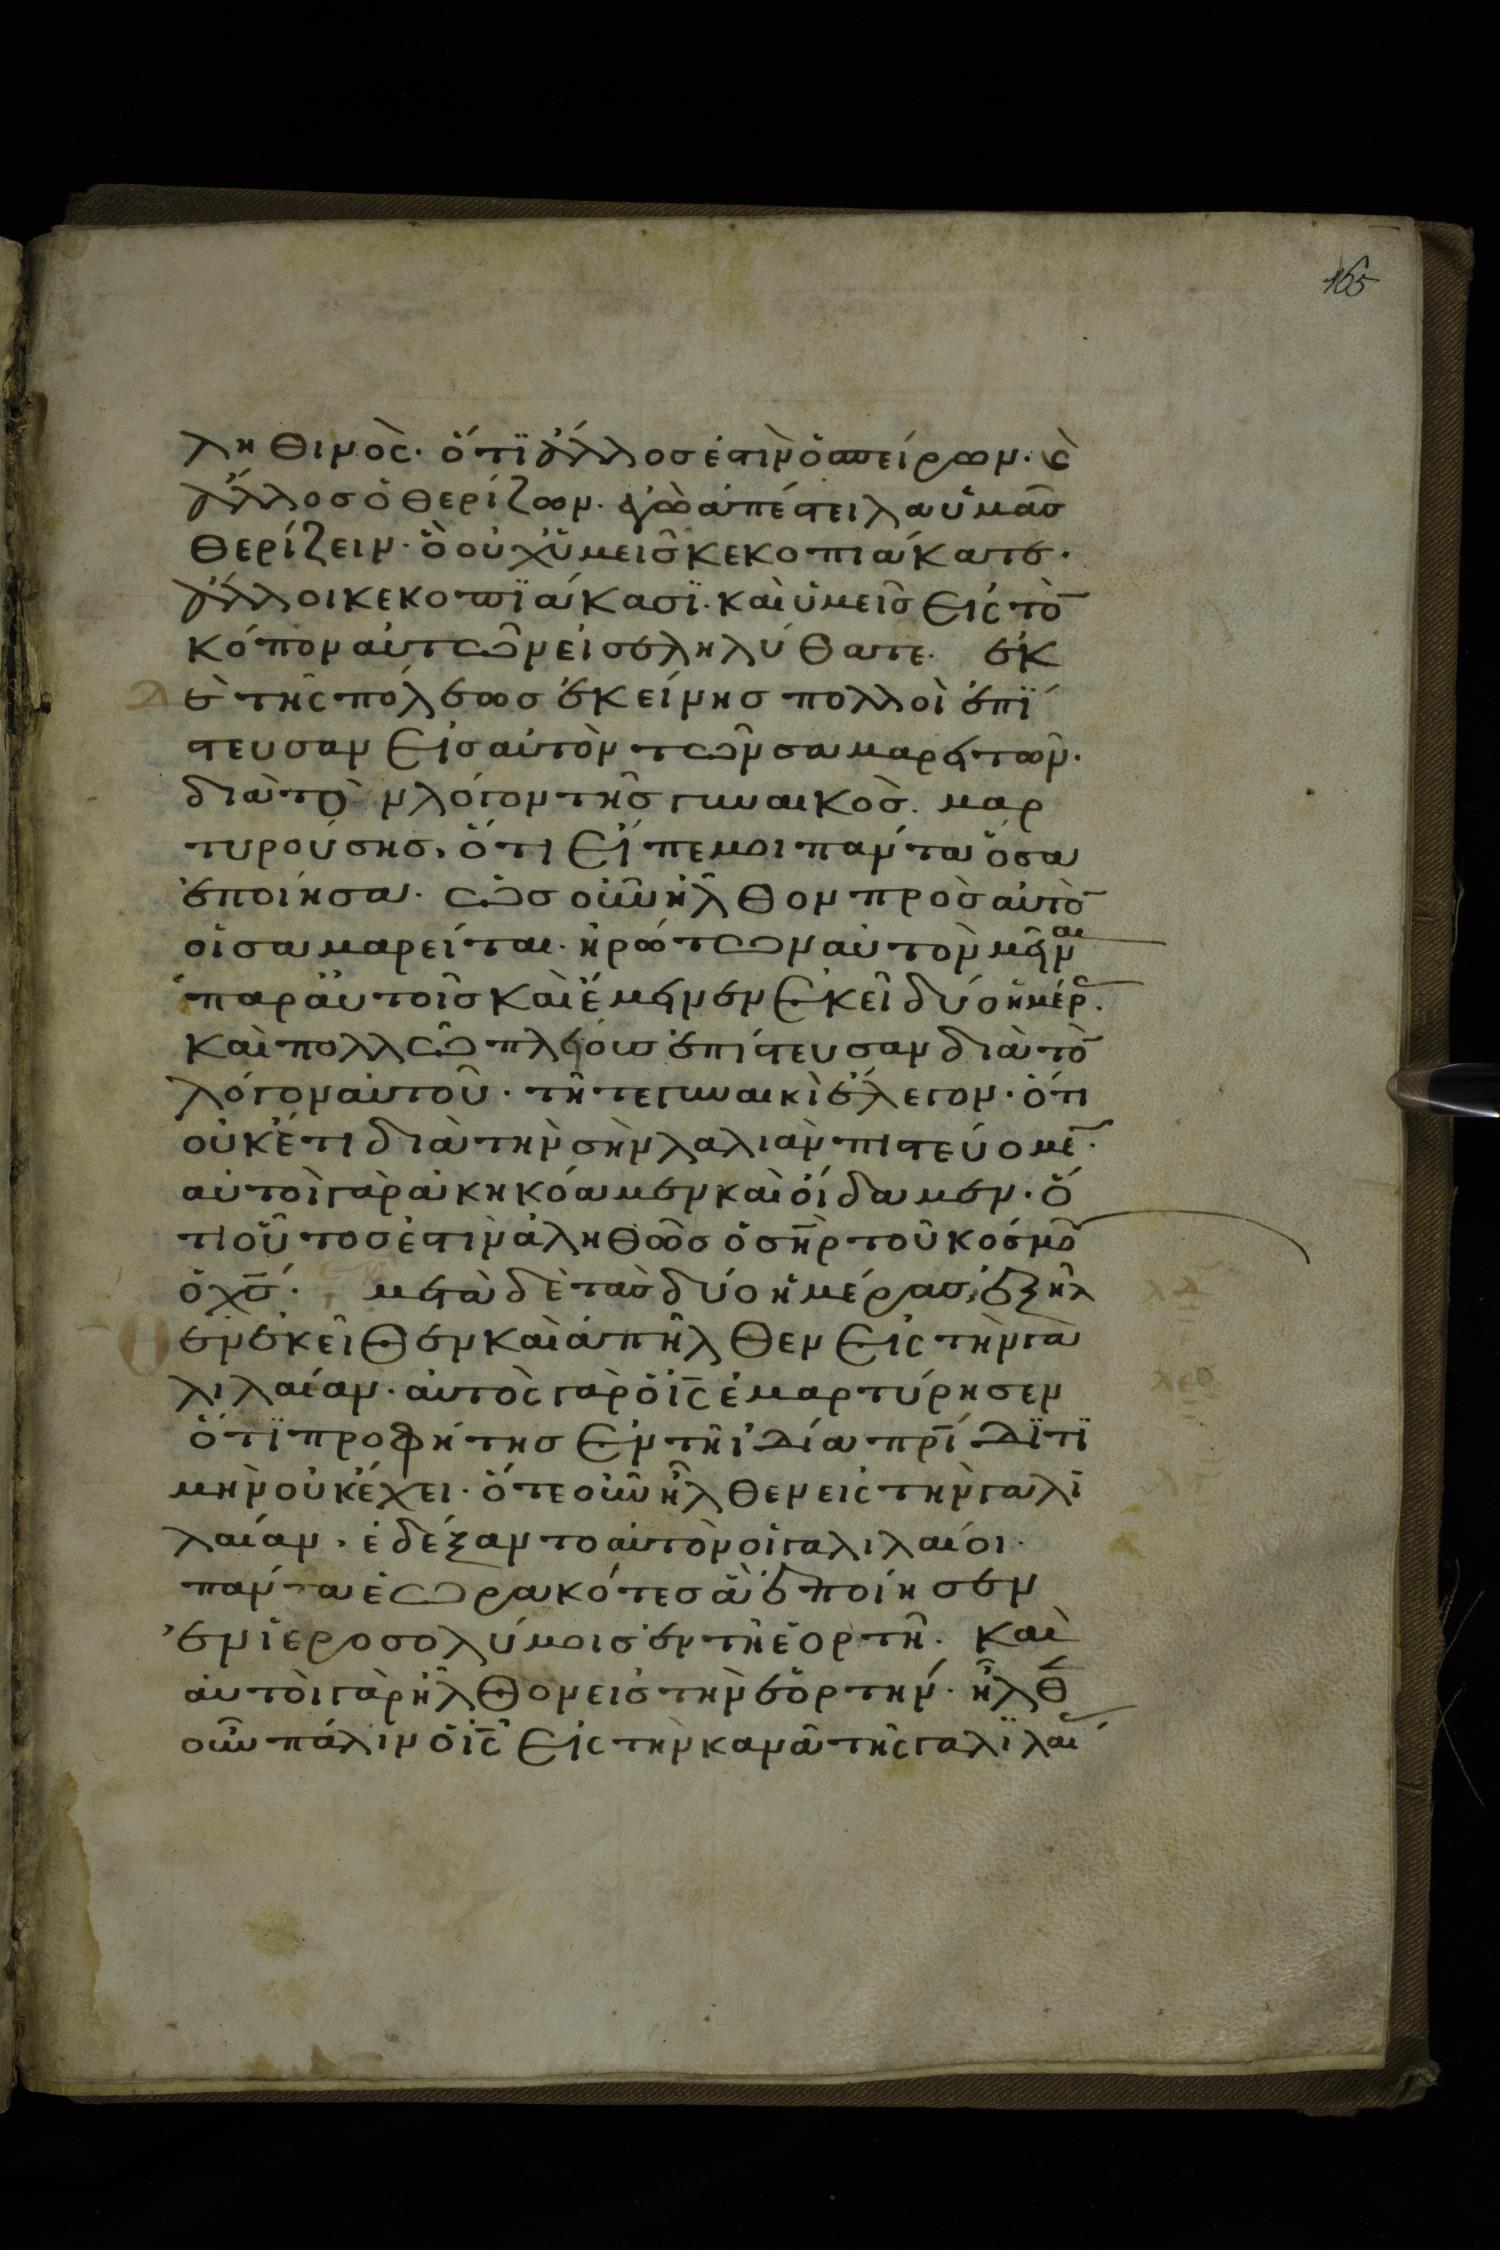 165
ληθινὸς· ὅτϊ ἄλλος ἐστὶν ὁ σπείρων· κ̀
ἄλλος ὁ θερίζων· ἐγὼ ἀπέστειλα ὑμᾶς
θερίζειν· ὃ οὐχ ὑμεῖς κεκοπιάκατε·
ἄλλοι κεκοπϊάκασϊ· καὶ ὑμεῖς εἰς τὸ̄
κόπον αὐτῶν εἰσεληλύθατε· ἐκ
δὲ τῆς πόλεως ἐκείνης πολλοὶ ἐπΐ
στευσαν εἰς αὐτὸν τῶν σαμαρειτῶν·
διὰ τὸν λόγον τῆς γυναικὸς· μαρ
τυρούσης, ὅτι εἶπε μοι πάντα ὅσα
ἐποίησα· ὡς οὖν ἦλθον πρὸς αὐτὸ̄
οἱ σαμαρεῖται· ἠρώτων αὐτὸν μεῖναι
παρ' αὐτοῖς καὶ ἔμεινεν ἐκεῖ δύο ἡμέρ·
καὶ πολλῶ πλείους ἐπίστευσαν διὰ τὸ̄
λόγον αὐτοῦ· τῆ τε γυναικὶ ἔλεγον· ὅτι
οὐκέτι διὰ τὴν σὴν λαλιὰν πιστεύομε̄·
αὐτοὶ γὰρ ἀκηκόαμεν καὶ οἴδαμεν· ὅ
τι οὗτος ἐστὶν ἀληθῶς ὁ σ̄η̄ρ τοῦ κόσμου
ὁ χ̄ς̄· μετὰ δὲ τὰς δύο ἡμέρας, ἐξῆλ
θεν ἐκεῖθεν καὶ ἀπῆλθεν εἰς τὴν γα
λιλαίαν· αὐτὸς γὰρ ὁ ῑς̄ ἐμαρτύρησεν
ὅτϊ προφήτης ἐν τῆ ἰδία π̄ρ̄ίδϊ τϊ
μὴν οὐκ ἔχει· ὅτε οὖν ἦλθεν εἰς τὴν γαλϊ
λαίαν, ἐδέξαντο αὐτὸν οἱ γαλιλαίοι·
πάντα ἑωρακότες ἃ ἐποίησεν
ἐν ἱεροσολύμοις ἐν τῆ ἑορτῆ· καὶ
αὐτοὶ γὰρ ἦλθον εἰς τὴν ἑορτήν· ἦλθε̄
οὖν πάλιν ὁ ῑς̄ εἰς τὴν κανᾶ τῆς γαλϊλαί